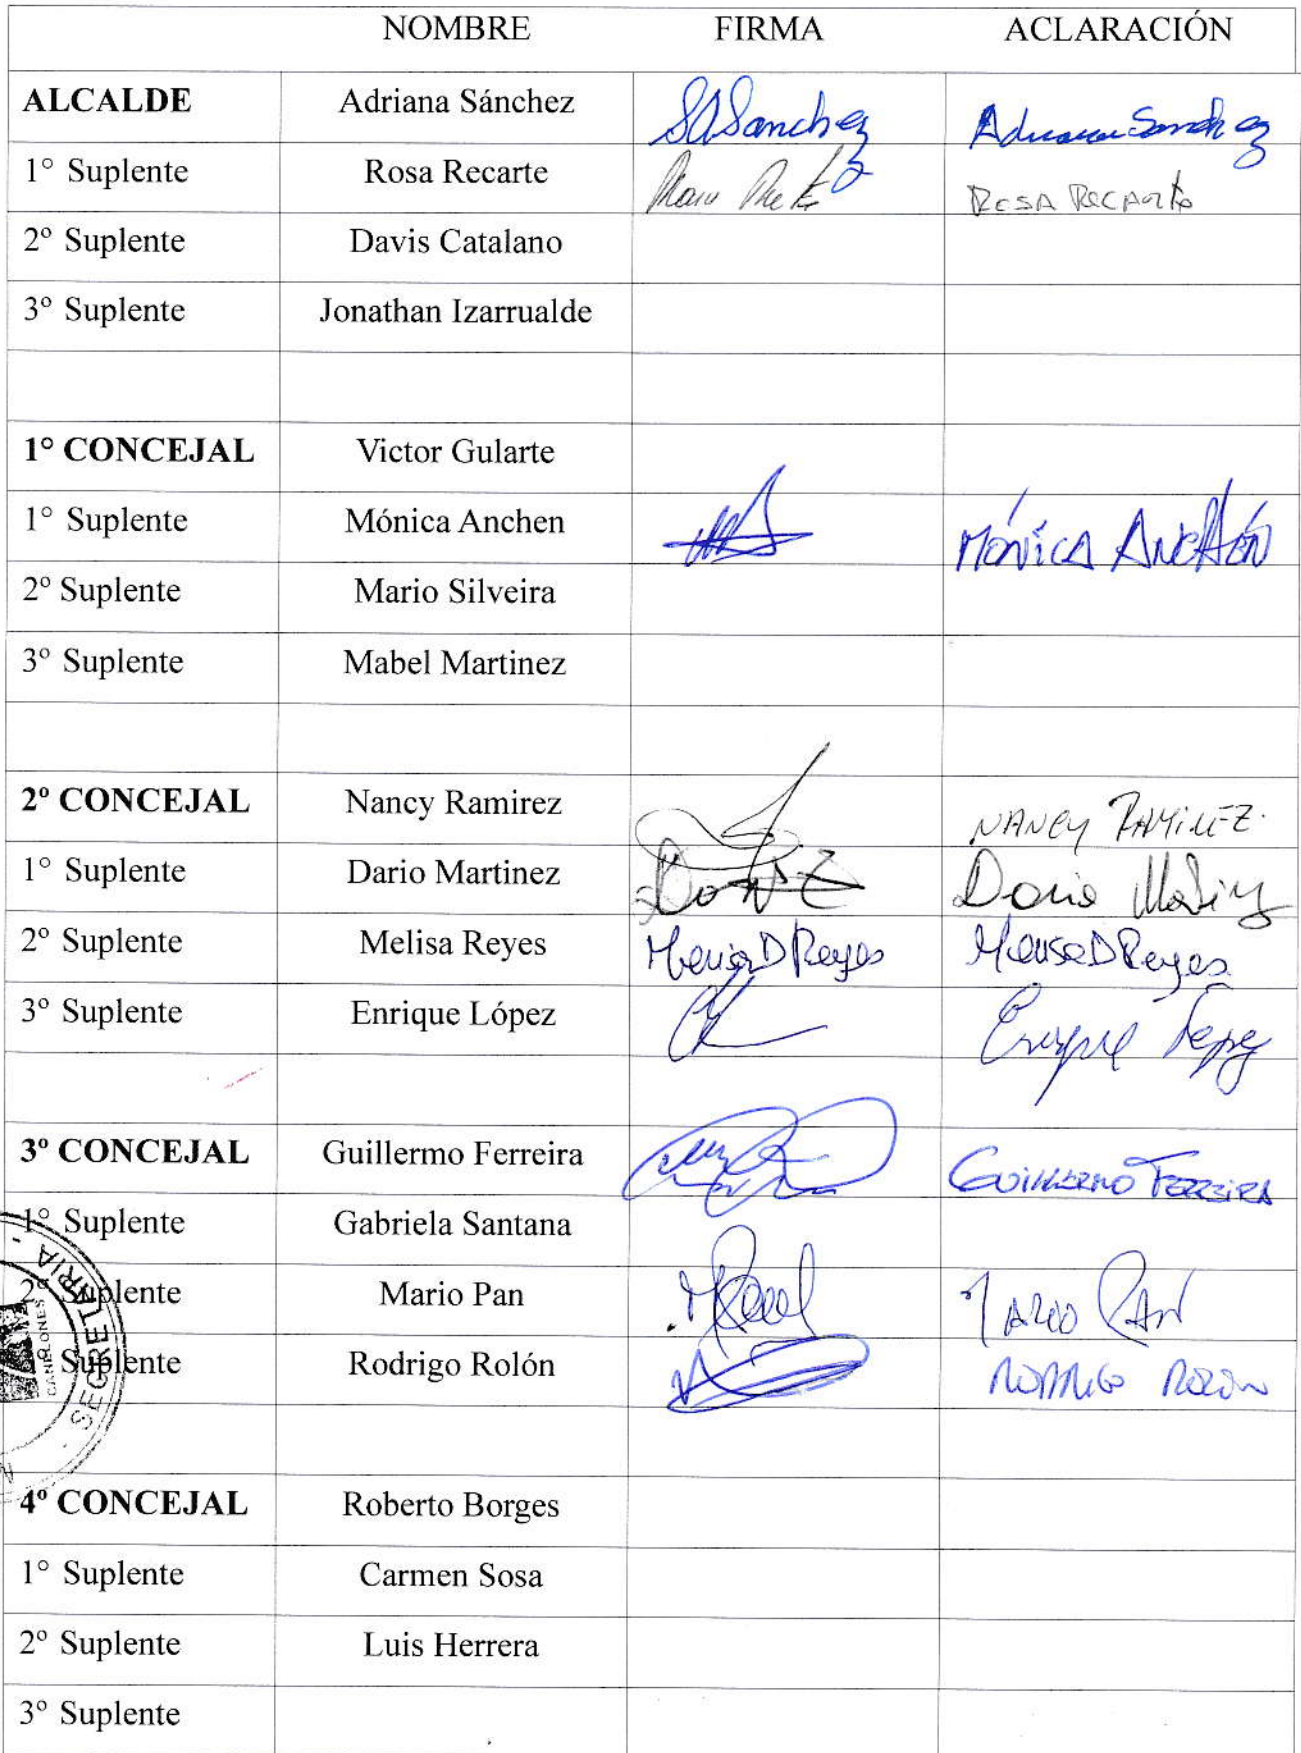 NOMBRE FIRMA ACLARACIÓN
ALCALDE Adriana Sánchez SASanchez Adriana Sanchez
1° Suplente Rosa Recarte ROSA RECARTE
2° Suplente Davis Catalano
3° Suplente Jonathan Izarrualde
1° CONCEJAL Victor Gularte
1° Suplente Mónica Anchen MÓNICA ANCHÉN
2° Suplente Mario Silveira
3° Suplente Mabel Martinez
2º CONCEJAL Nancy Ramirez NANCY RAMIREZ.
1° Suplente Dario Martinez Dario
2° Suplente Melisa Reyes Melisa D Reyes Melisa D Reyes
3° Suplente Enrique López Enrique Lopez
3º CONCEJAL Guillermo Ferreira GUILLERMO FERREIRA
1° Suplente Gabriela Santana
2° Suplente Mario Pan MARIO PAN
Suplente Rodrigo Rolón RODRIGO ROLON
SECRETARIA -
CANELONES
4º CONCEJAL Roberto Borges
1° Suplente Carmen Sosa
2° Suplente Luis Herrera
3° Suplente